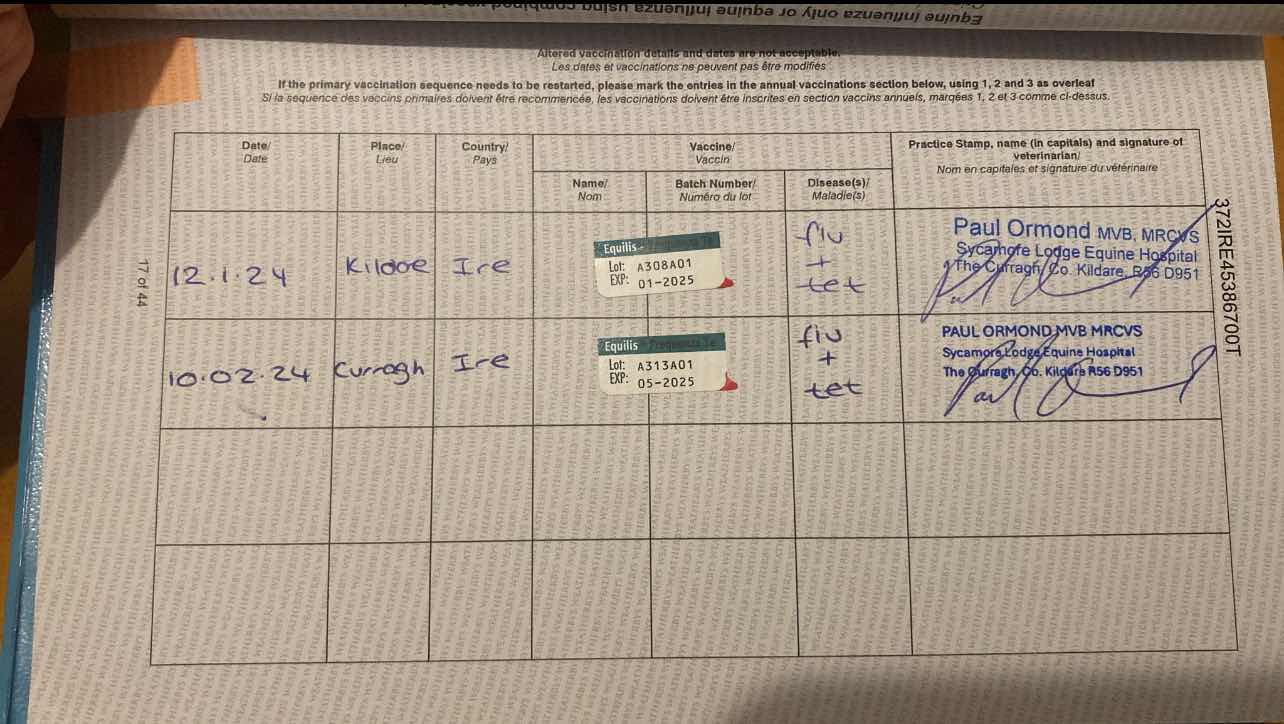 Equine influenza only or equine influenza using combined
Altered vaccination details and dates are not acceptable.
Les dates et vaccinations ne peuvent pas être modifiés
If the primary vaccination sequence needs to be restarted, please mark the entries in the annual vaccinations section below, using 1, 2 and 3 as overleaf
Si la séquence des vaccins primaires doivent être recommencée, les vaccinations doivent être inscrites en section vaccins annuels, marqées 1, 2 et 3 comme ci-dessus.
Date/
Date
Place/
Lieu
Country/
Pays
Vaccine/
Vaccin
Name/
Nom
Batch Number/
Numéro du lot
Disease(s)/
Maladie(s)
Practice Stamp, name (in capitals) and signature of
veterinarian/
Nom en capitales et signature du vétérinaire
12.1.24
Kildare
Ire
Equilis Prequenza Te
Lot: A308A01
EXP: 01-2025
flu
+
tet
Paul Ormond MVB, MRCVS
Sycamore Lodge Equine Hospital
The Curragh, Co. Kildare, R56 D951
10.02.24
Curragh
Ire
Equilis Prequenza Te
Lot: A313A01
EXP: 05-2025
flu
+
tet
PAUL ORMOND MVB MRCVS
Sycamore Lodge Equine Hospital
The Curragh, Co. Kildare R56 D951
17 of 44
372IRE45386700T